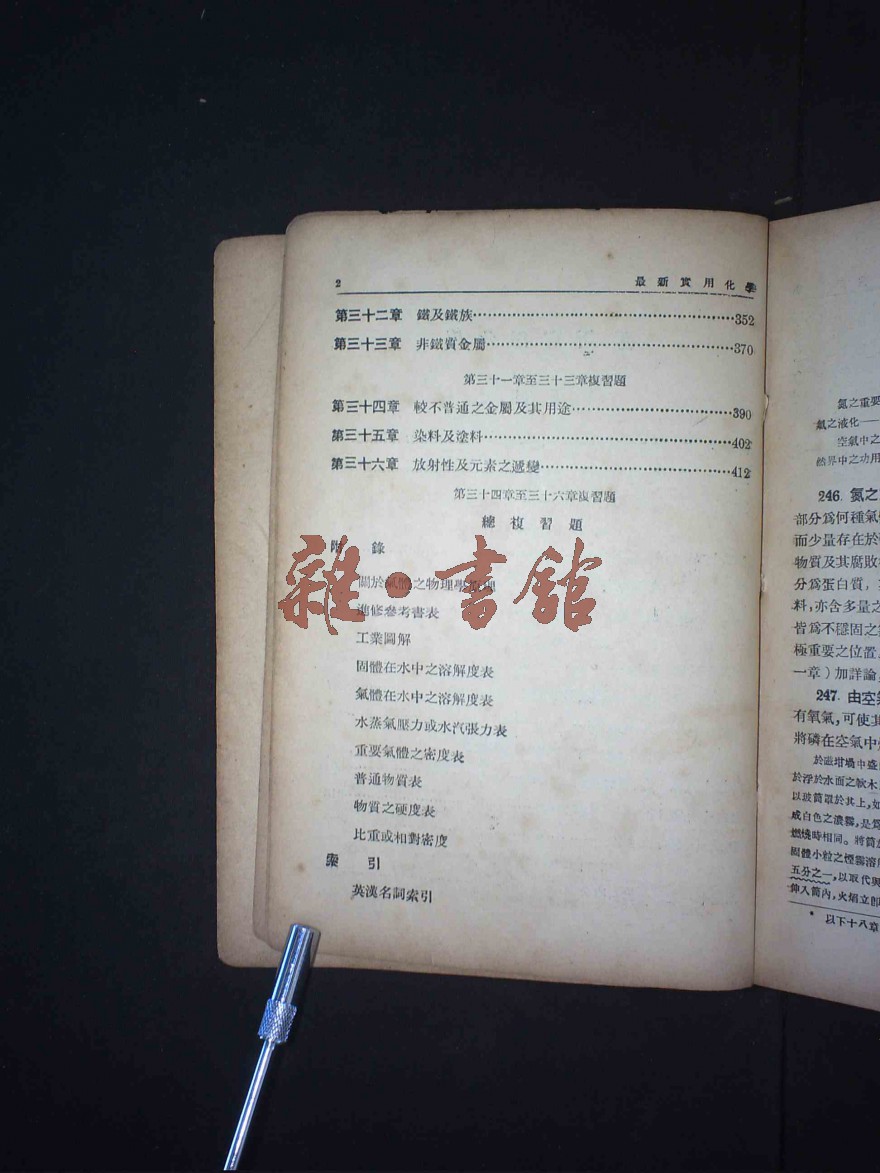 2 最新實用化學
第三十二章 鐵及鐵族……352
第三十三章 非鐵質金屬……370
第三十一章至三十三章複習題
第三十四章 較不普通之金屬及其用途……390
第三十五章 染料及塗料……402
第三十六章 放射性及元素之遞變……412
第三十四章至三十六章複習題
總複習題
附 錄
關於氣體之物理學定理
進修參考書表
工業圖解
固體在水中之溶解度表
氣體在水中之溶解度表
水蒸氣壓力或水汽張力表
重要氣體之密度表
普通物質表
物質之硬度表
比重或相對密度
索 引
英漢名詞索引
雜·書館
氮之重要
氣之液化——
空氣中之
然界中之功用
246. 氮之
部分爲何種氣
而少量存在於
物質及其腐敗
分爲蛋白質，
料，亦含多量之
皆爲不穩固之
極重要之位置
一章）加詳論
247. 由空
有氧氣，可使其
將磷在空氣中
於磁坩堝中盛
於浮於水面之軟木
以玻筒罩於其上，如
成白色之濃霧，是爲
燃燒時相同。將筒
固體小粒之煙霧溶
五分之一，以取代與
伸入筒內，火焰立卽
* 以下十八章